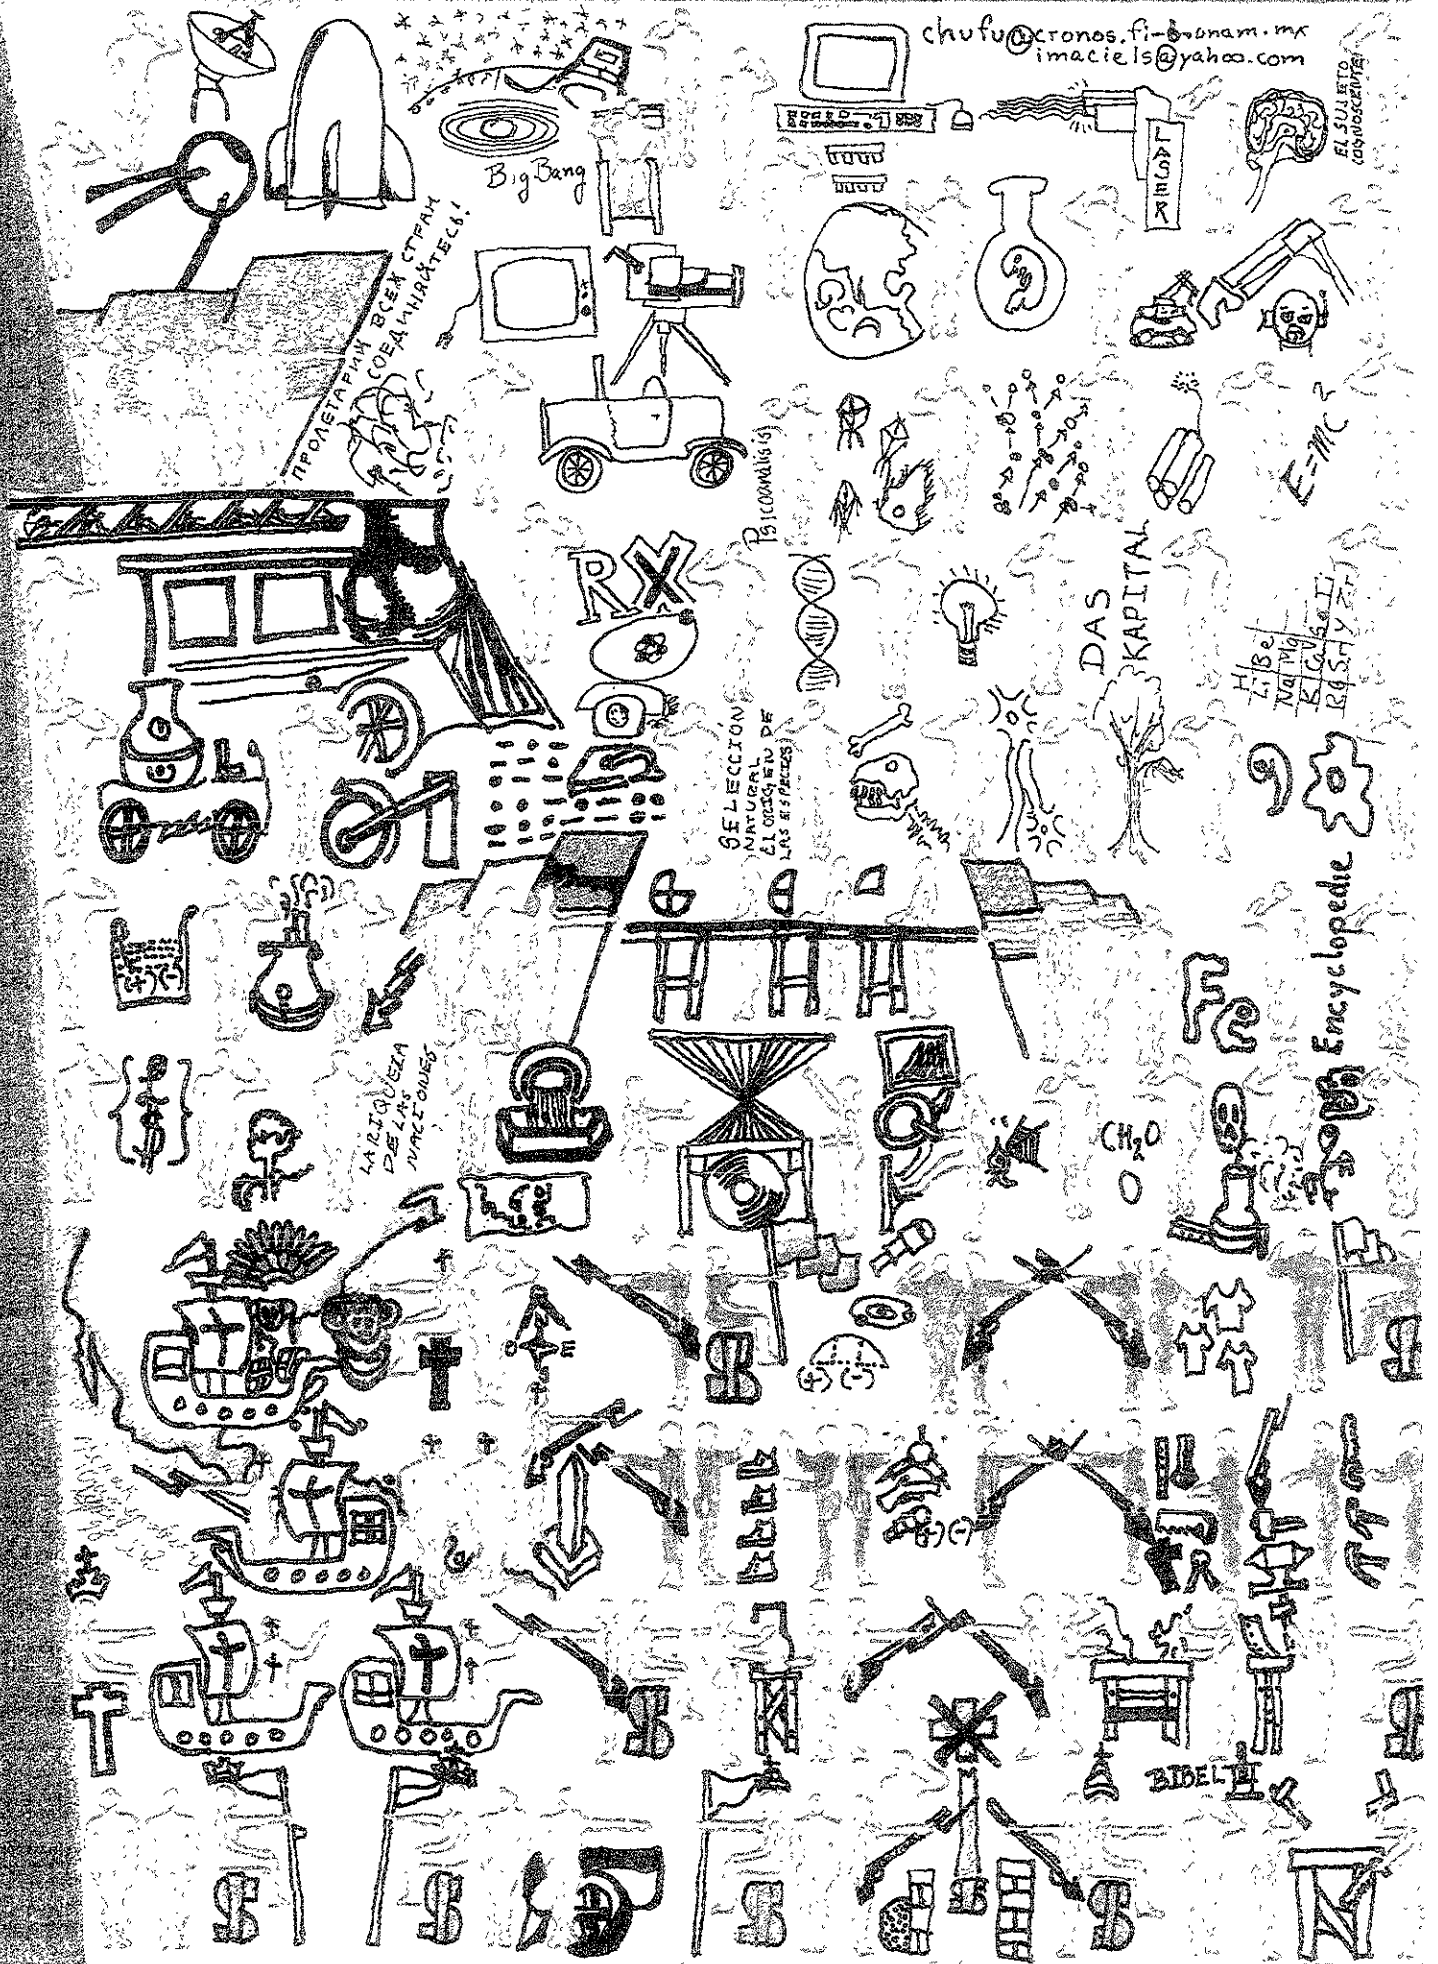 imaciels@yahoo.com
LASER
EL SUJETO
COGNOSCENTE
Big Bang
ПРОЛЕТАРИЙ ВСЕХ СТРАН
СОЕДИНЯЙТЕСЬ!
Psicoanálisis
E=MC²
RX
DAS
KAPITAL
H
Li Be
Na Mg
K Ca Sc Ti
Rb Sr Y Zr
SELECCIÓN
NATURAL
EL ORIGEN DE
LAS ESPECIES
(+) (-)
Fe
Encyclopedie
LA RIQUEZA
DE LAS
NACIONES
$
CH₂O
O
$
$
O E
(+) (-)
(+) (-)
$
$
BIBEL
$
$
$
$
$